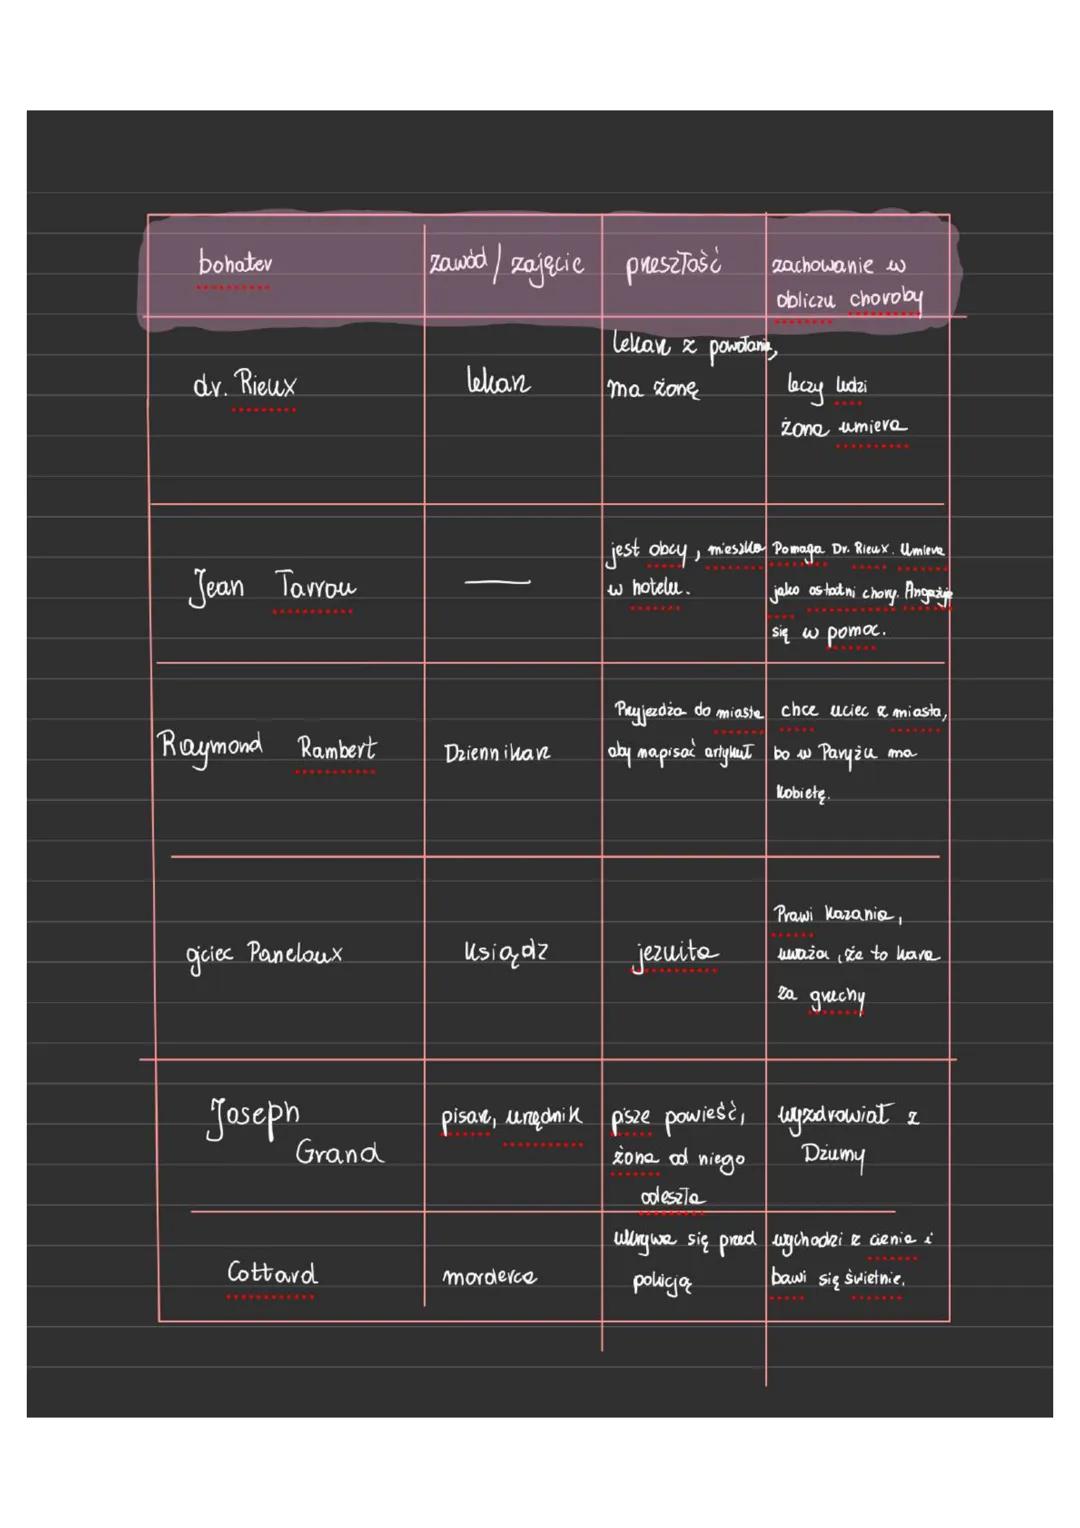 bohater
zawód / zajęcie
przeszłość
zachowanie w
obliczu choroby
dr. Rieux
lekarz
lekarz z powołania,
ma żonę
leczy ludzi
żona umiera
Jean Tarrou
jest obcy, mieszka
w hotelu.
Pomaga Dr. Rieux. Umiera
jako ostatni chory. Angażuje
się w pomoc.
Raymond Rambert
Dziennikarz
Przyjeżdża do miasta
aby napisać artykuł
chce uciec z miasta,
bo w Paryżu ma
kobietę.
ojciec Paneloux
ksiądz
jezuita
Prawi kazania,
uważa, że to kara
za grzechy
Joseph
Grand
pisarz, urzędnik
pisze powieść,
żona od niego
odeszła
wyzdrowiał z
Dżumy
Cottard
morderca
ukrywa się przed
policją
wychodzi z cienia i
bawi się świetnie.